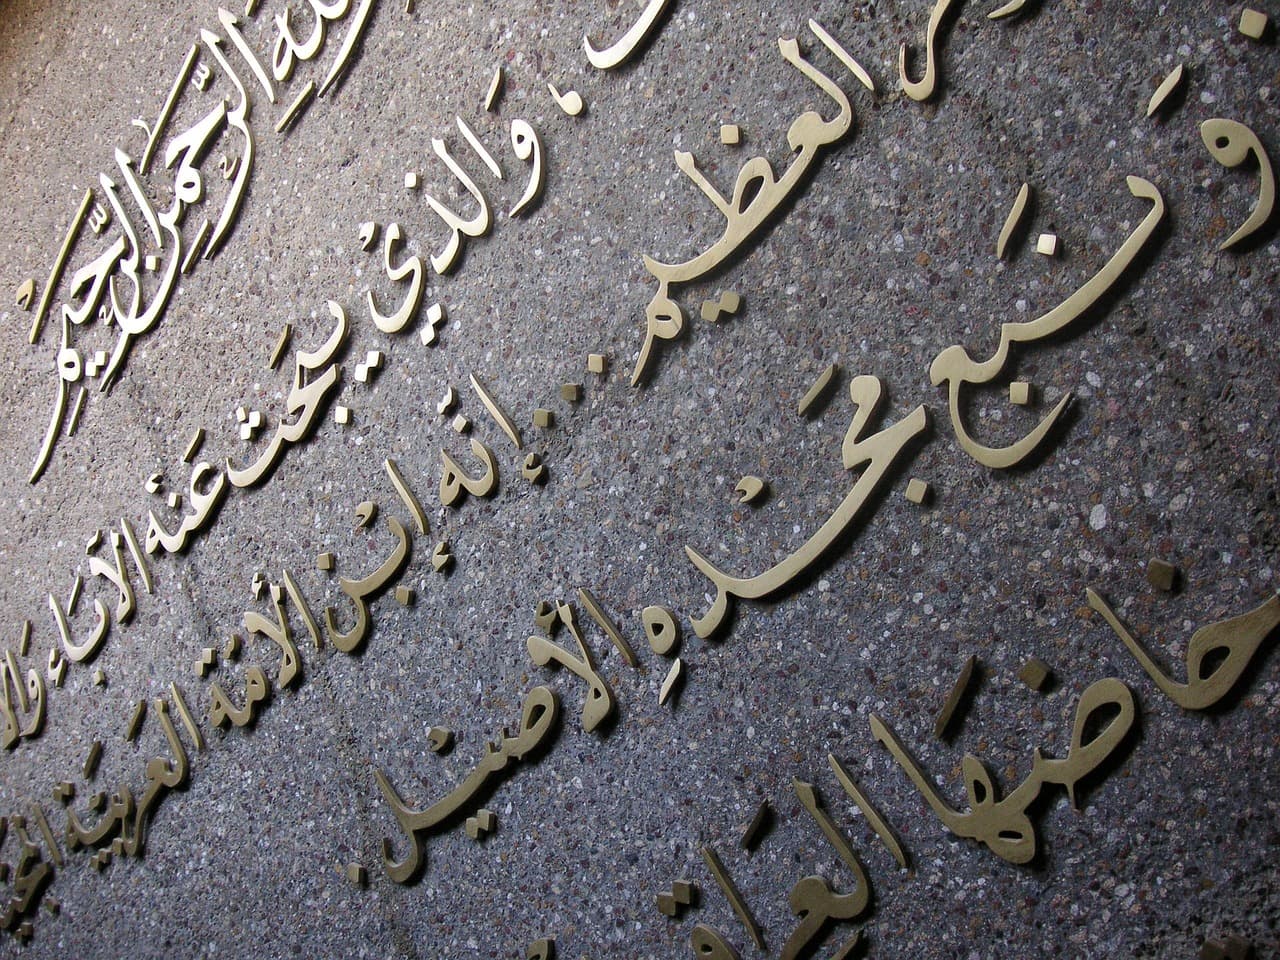 الرَّحمنِ الرَّحيمِ
، وَالذي يبحَث عَنه الآبَاء
العظيم .. إنّه ابْن الأمّة العَربيّة
وَنَبع مَجْدهِ الأصيْل.
خاضهَا